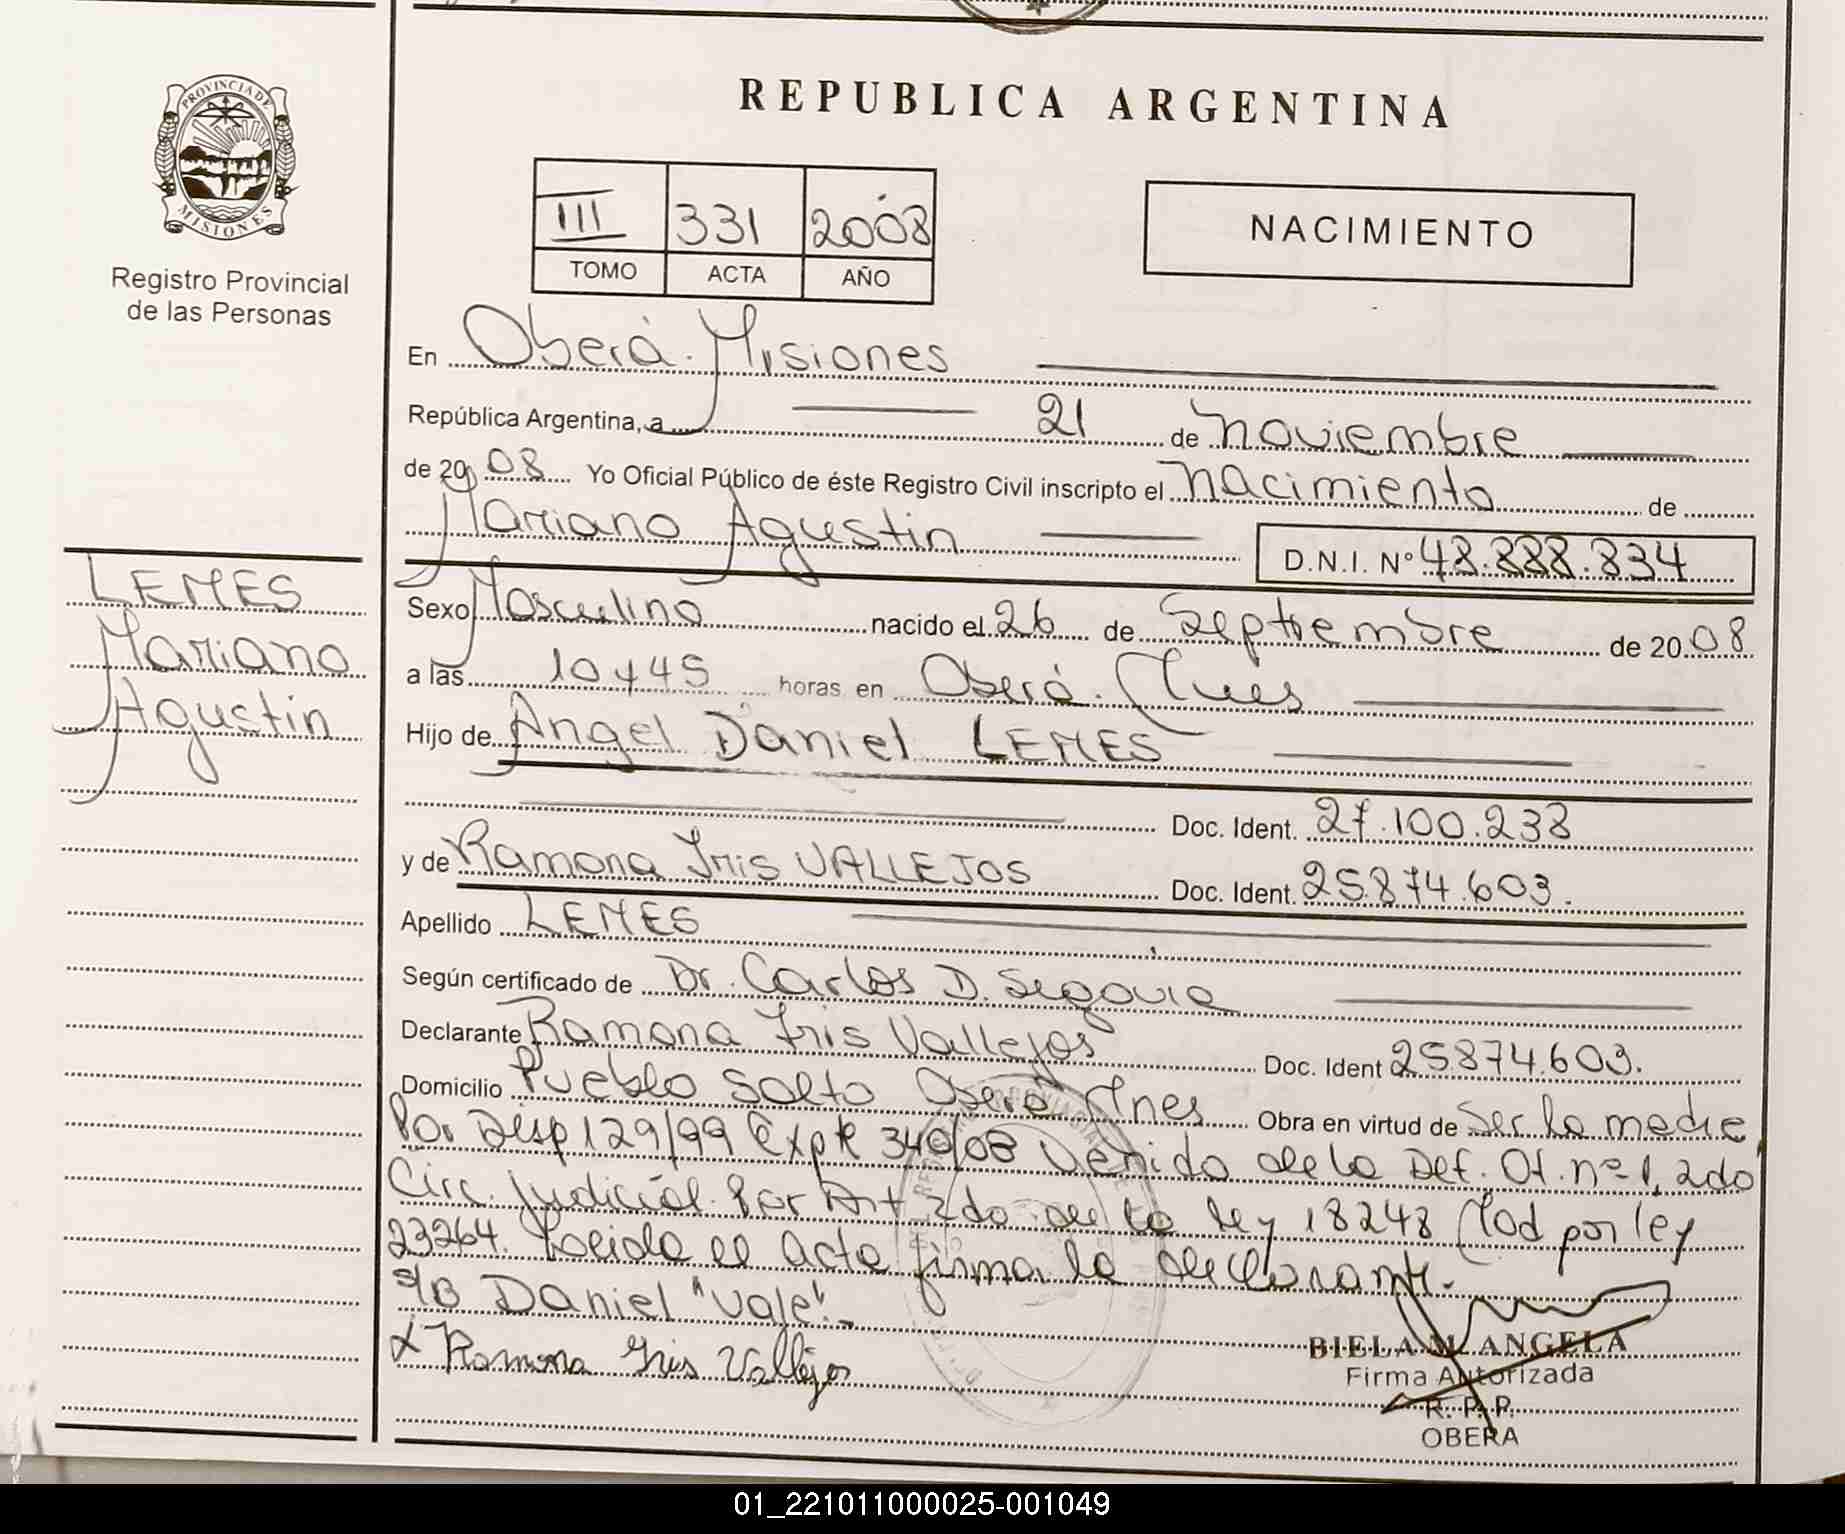 REPUBLICA ARGENTINA
PROVINCIA DE
MISIONES
Registro Provincial
de las Personas
III 331 2008
TOMO ACTA AÑO
NACIMIENTO
En Oberá. Misiones
República Argentina, a 21 de Noviembre
de 2008 Yo Oficial Público de éste Registro Civil inscripto el Nacimiento de
Mariano Agustin D.N.I. Nº 48.888.834
LEMES
Mariano
Agustin
Sexo Masculino nacido el 26 de Septiembre de 2008
a las 10 y 45 horas en Oberá. Mnes
Hijo de Angel Daniel LEMES
Doc. Ident. 27.100.238
y de Ramona Iris VALLEJOS Doc. Ident. 25.874.603.
Apellido LEMES
Según certificado de Dr. Carlos D. Segovia
Declarante Ramona Iris Vallejos Doc. Ident 25874.603.
Domicilio Pueblo Salto Oberá Mnes Obra en virtud de Ser la madre
Por Disp 129/99 Expte 340/08 venido de la Def. Of. nº 1, 2do
Circ. Judicial. Por Art 2do de la ley 18248 Mod por ley
23264. Leida el acta firma la declarante.
s/B Daniel "Vale".-
x Ramona Iris Vallejos
BIELA M. ANGELA
Firma Autorizada
R. P. P.
OBERA
01_221011000025-001049